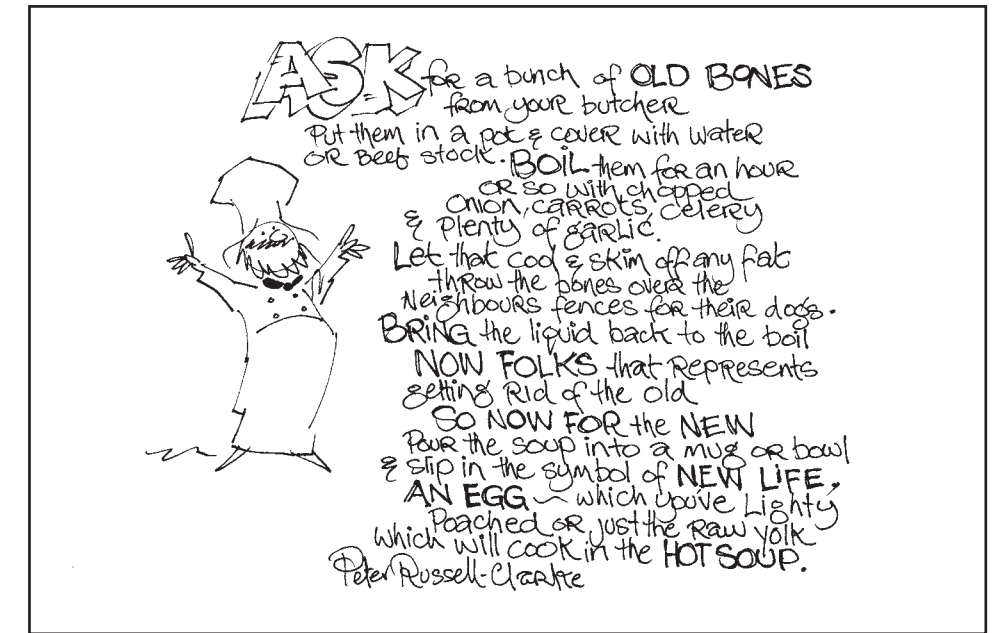 ASK for a bunch of OLD BONES
from your butcher
Put them in a pot & cover with water
OR Beef stock. BOIL them for an hour
OR so with chopped
Onion, carrots, celery
& Plenty of garlic.
Let that cool & skim off any fat
throw the bones over the
Neighbours fences for their dogs.
BRING the liquid back to the boil
NOW FOLKS that Represents
getting Rid of the old
SO NOW FOR the NEW
Pour the soup into a mug or bowl
& slip in the symbol of NEW LIFE.
AN EGG ~ which you've Lighty
Poached or just the Raw yolk
which will cook in the HOT SOUP.
Peter Russell-Clarke